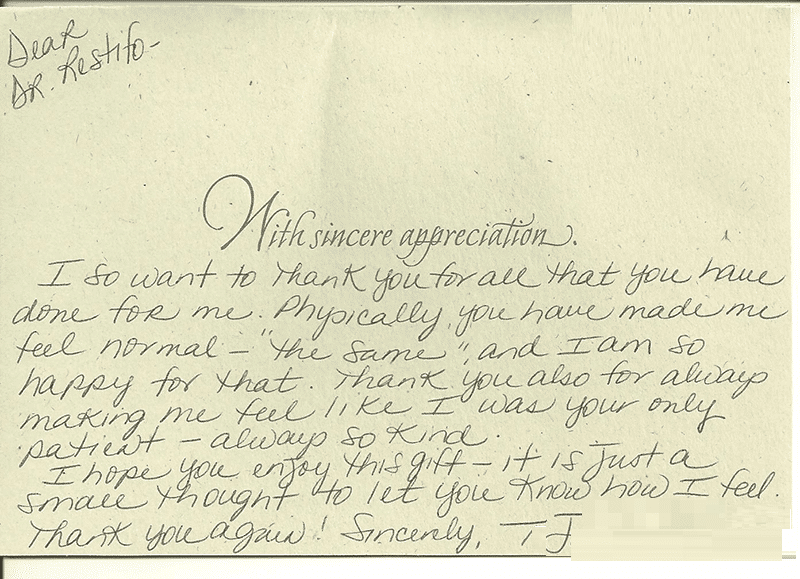 Dear
DR. Restifo-
With sincere appreciation.
I so want to thank you for all that you have
done for me. Physically you have made me
feel normal - "the same", and I am so
happy for that. Thank you also for always
making me feel like I was your only
patient - always so kind.
I hope you enjoy this gift - it is just a
small thought to let you know how I feel.
Thank you again! Sincerly, T J